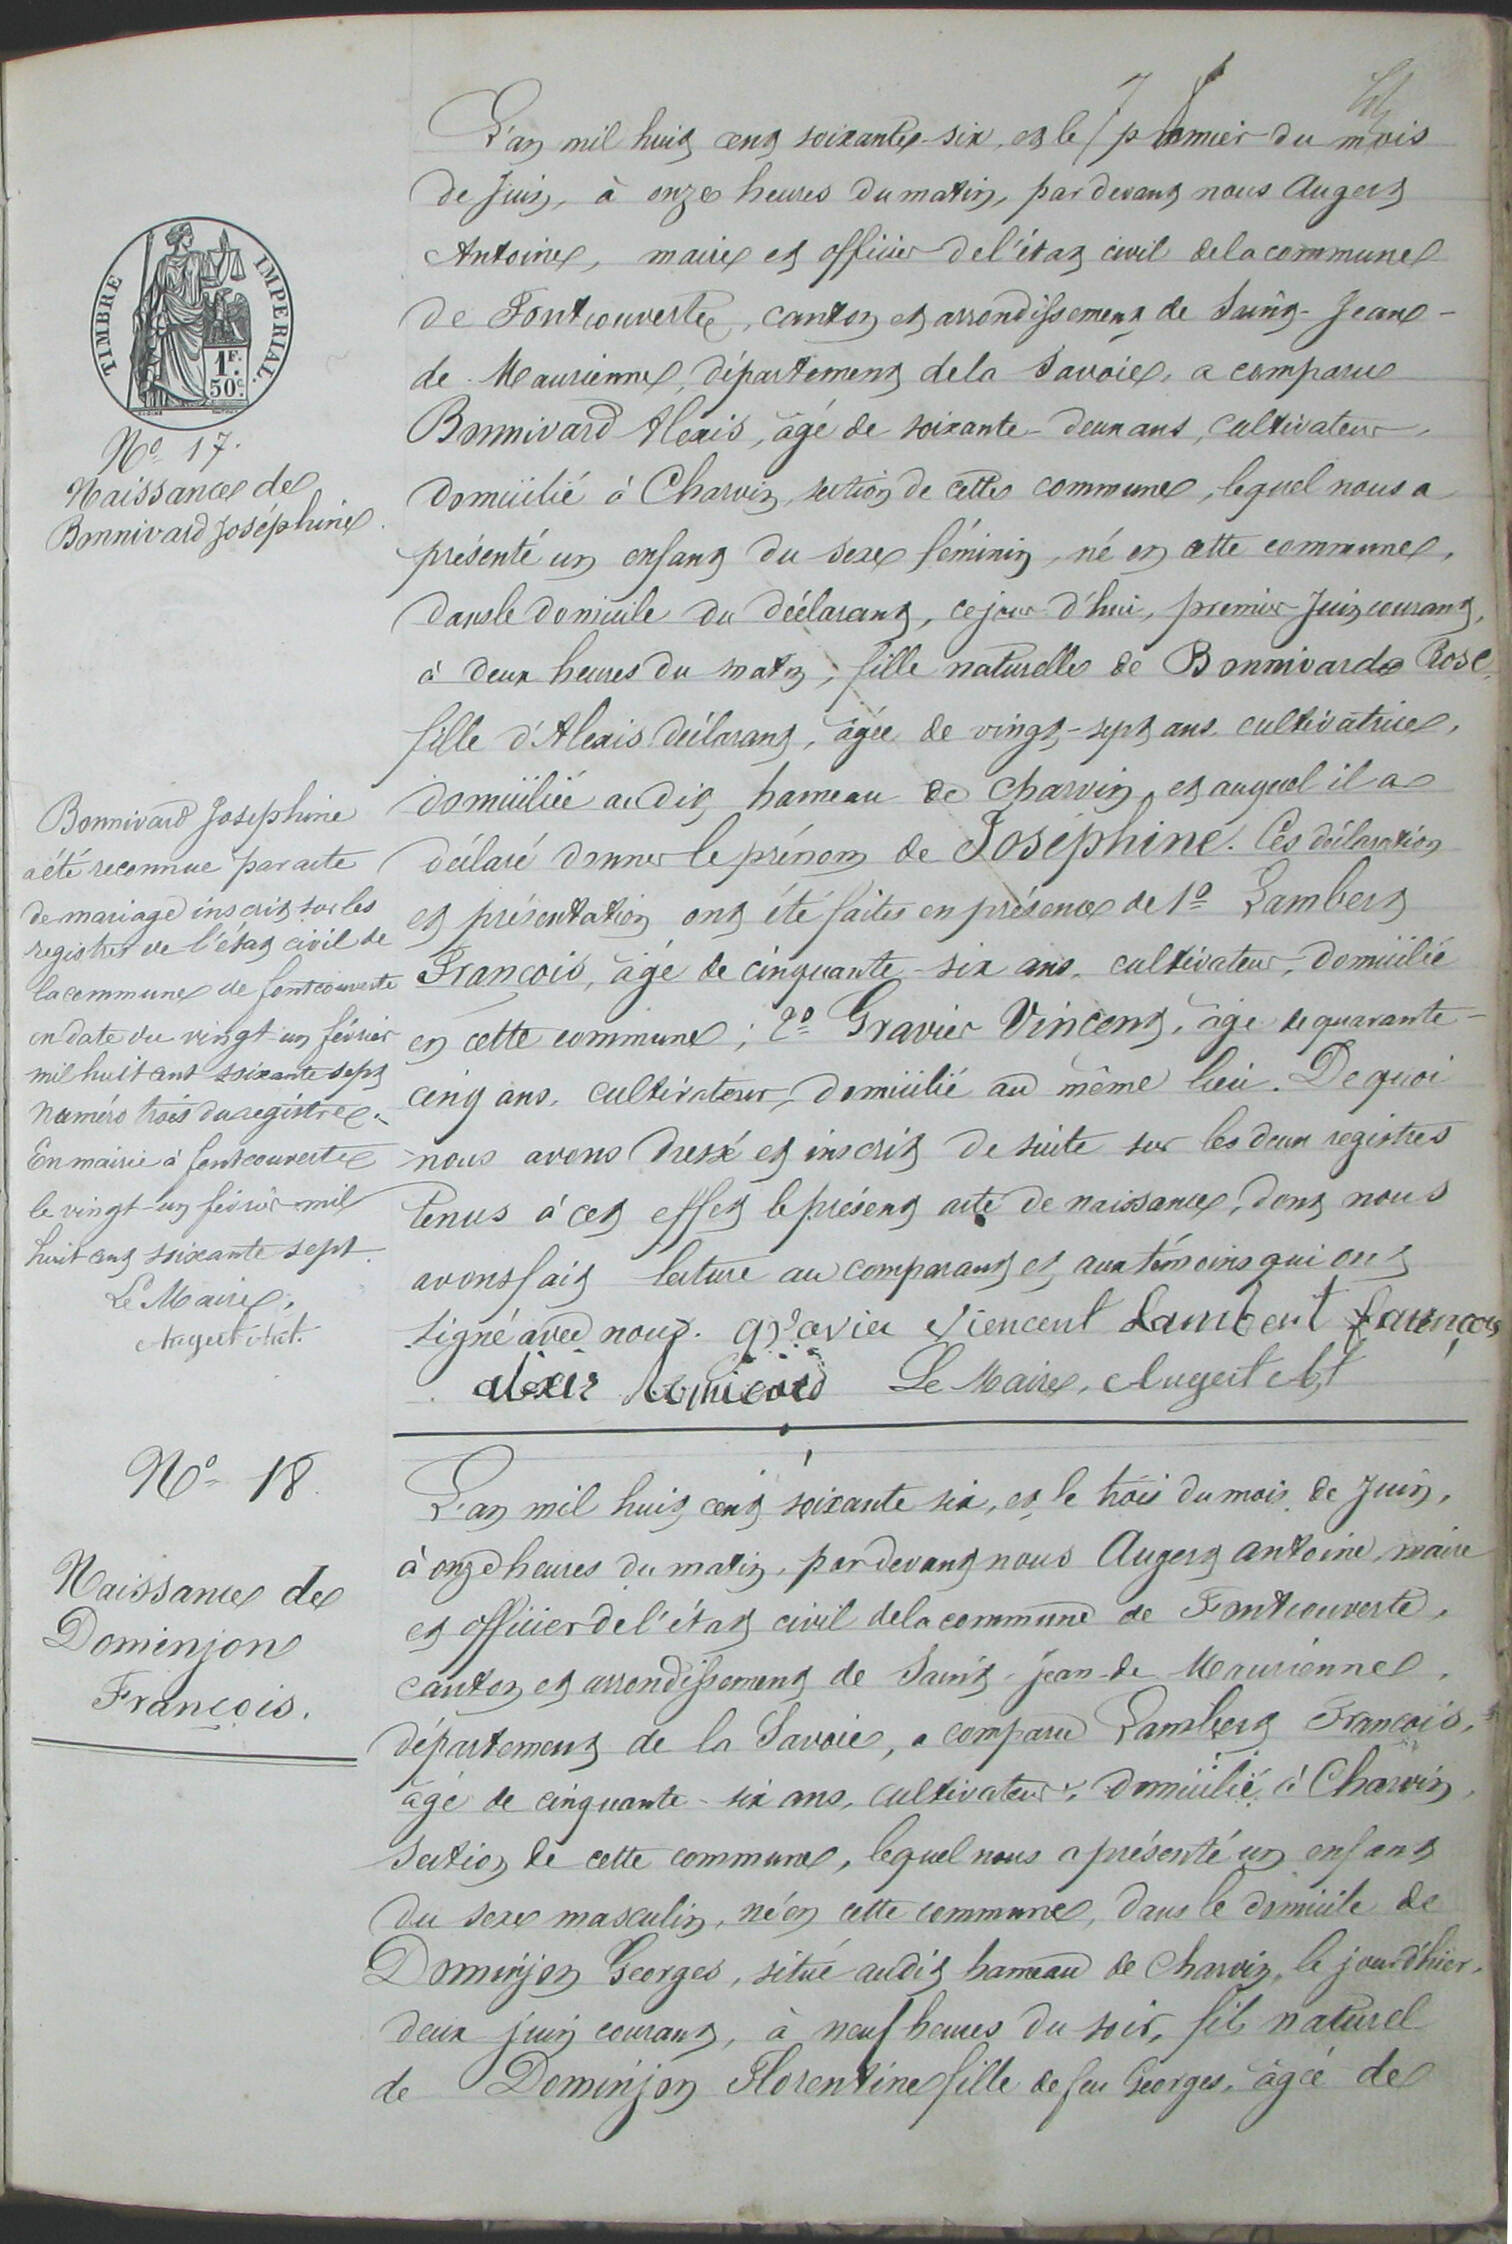 L'an mil huit cent soixante-six, et le premier du mois
de Juin, à onze heures du matin, par devant nous Augert
Antoine, maire et officier de l'état civil de la commune
de Fontcouverte, canton et arrondissement de Saint-Jean-
de Maurienne, département de la Savoie, a comparu
Bonnivard Alexis, âgé de soixante-deux ans, cultivateur,
domicilié à Charvin, section de cette commune, lequel nous a
présenté un enfant du sexe féminin, né en cette commune,
dans le domicile du déclarant, ce jour d'hui, premier Juin courant,
à deux heures du matin, fille naturelle de Bonnivard Rose,
fille d'Alexis déclarant, âgée de vingt-sept ans, cultivatrice,
domiciliée au dit hameau de Charvin, et auquel il a
déclaré donner le prénom de Joséphine. Ces déclaration
et présentation ont été faites en présence de 1º Lambert
François, âgé de cinquante-six ans, cultivateur, domicilié
en cette commune; 2º Gravier Vincent, âgé de quarante-
cinq ans, cultivateur, domicilié au même lieu. De quoi
nous avons dressé et inscrit de suite sur les deux registres
tenus à cet effet le présent acte de naissance, dont nous
avons fait lecture au comparant et aux témoins qui ont
signé avec nous. Gravier Viencent Lambert François
alexis Bonnivard Le Maire, Augert Ant
TIMBRE IMPERIAL.
1F.
50c.
No 17.
Naissance de
Bonnivard Joséphine.
Bonnivard Joséphine
a été reconnue par acte
de mariage inscrit sur les
registres de l'état civil de
la commune de fontcouverte
en date du vingt-un février
mil huit cent soixante sept
Numéro trois du registre.
En mairie à fontcouverte
le vingt-un février mil
huit cent soixante sept.
Le Maire,
Augert Ant.
No 18.
Naissance de
Dominjon
François.
L'an mil huit cent soixante six, et le trois du mois de Juin,
à onze heures du matin, par devant nous Augert antoine, maire
et officier de l'état civil de la commune de Fontcouverte,
canton et arrondissement de Saint-jean-de Maurienne,
département de la Savoie, a comparu Lambert François,
âgé de cinquante-six ans, cultivateur, domicilié à Charvin,
section de cette commune, lequel nous a présenté un enfant
du sexe masculin, né en cette commune, dans le domicile de
Dominjon Georges, situé au dit hameau de Charvin, le jour d'hier,
deux juin courant, à neuf heures du soir, fils naturel
de Dominjon Florentine fille de feu Georges, âgée de